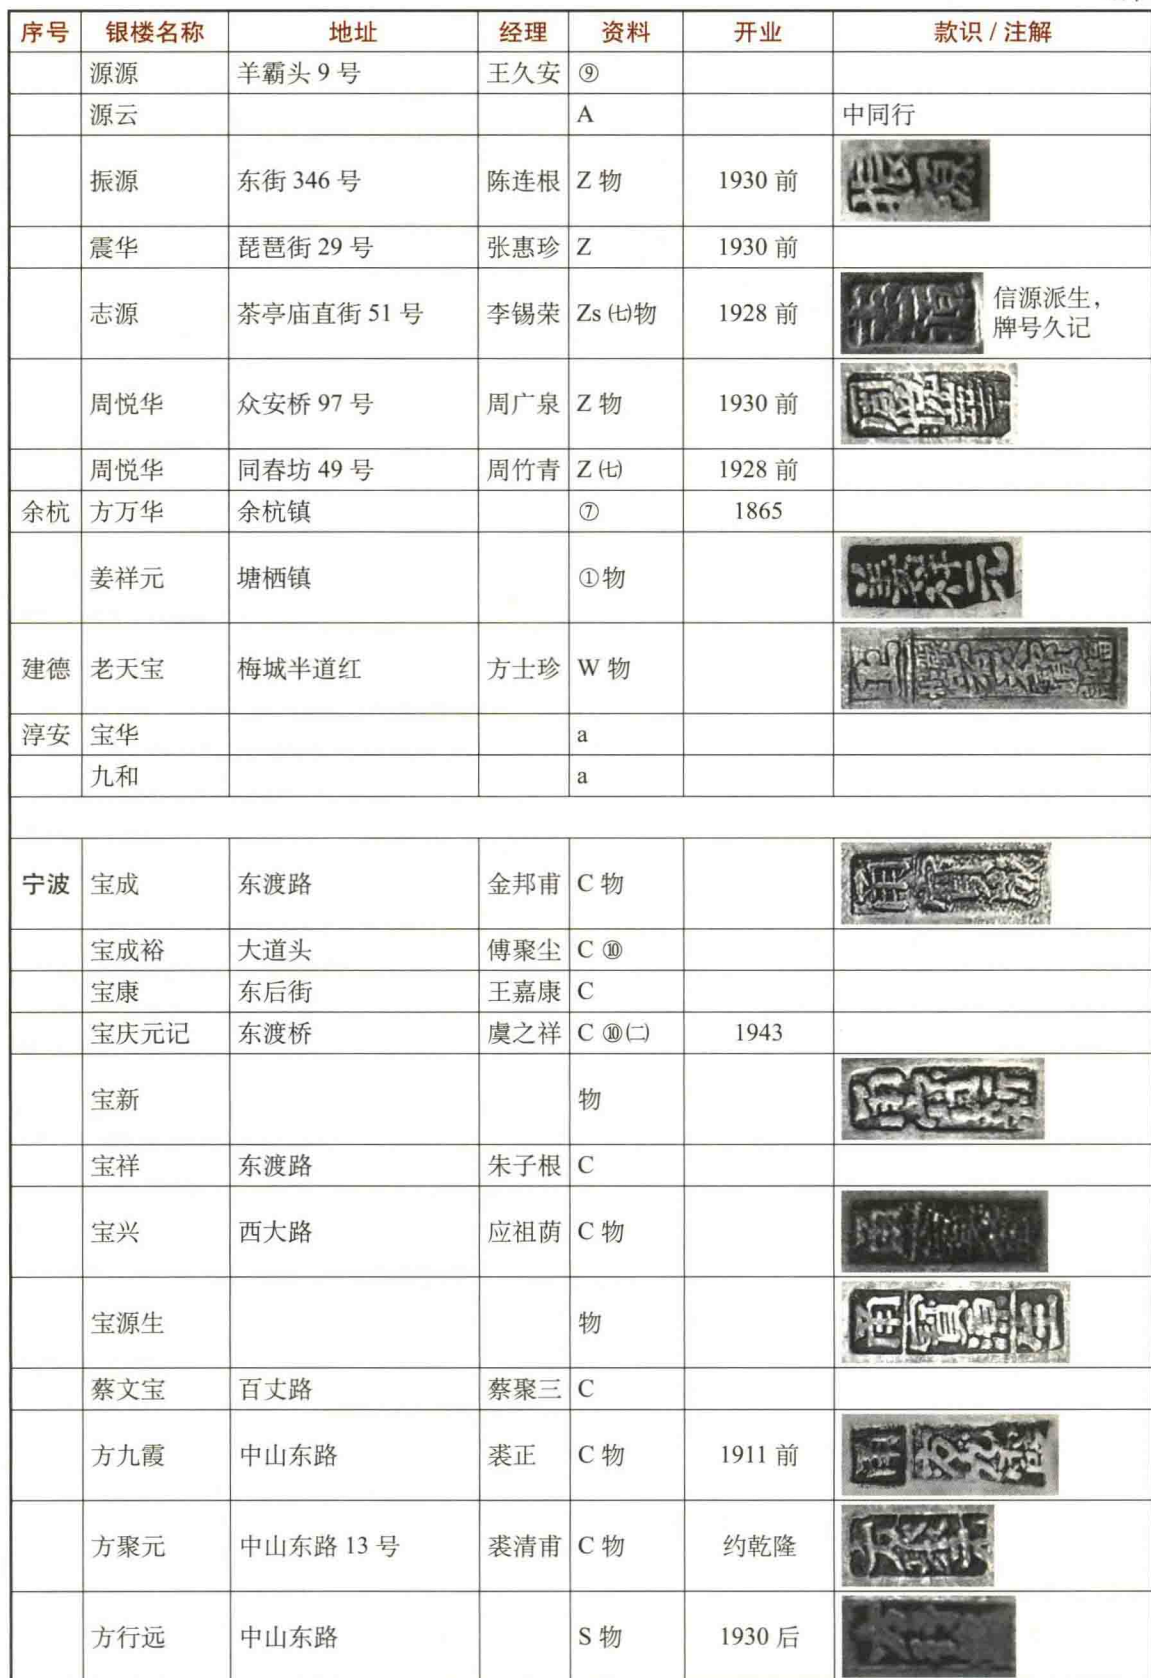 序号 银楼名称 地址 经理 资料 开业 款识 / 注解
源源 羊霸头 9 号 王久安 ⑨
源云 A 中同行
振源 东街 346 号 陈连根 Z 物 1930 前
震华 琵琶街 29 号 张惠珍 Z 1930 前
志源 茶亭庙直街 51 号 李锡荣 Zs ㈦物 1928 前 信源派生，
牌号久记
周悦华 众安桥 97 号 周广泉 Z 物 1930 前
周悦华 同春坊 49 号 周竹青 Z ㈦ 1928 前
余杭 方万华 余杭镇 ⑦ 1865
姜祥元 塘栖镇 ①物
建德 老天宝 梅城半道红 方士珍 W 物
淳安 宝华 a
九和 a
宁波 宝成 东渡路 金邦甫 C 物
宝成裕 大道头 傅聚尘 C ⑩
宝康 东后街 王嘉康 C
宝庆元记 东渡桥 虞之祥 C ⑩㈡ 1943
宝新 物
宝祥 东渡路 朱子根 C
宝兴 西大路 应祖荫 C 物
宝源生 物
蔡文宝 百丈路 蔡聚三 C
方九霞 中山东路 裘正 C 物 1911 前
方聚元 中山东路 13 号 裘清甫 C 物 约乾隆
方行远 中山东路 S 物 1930 后